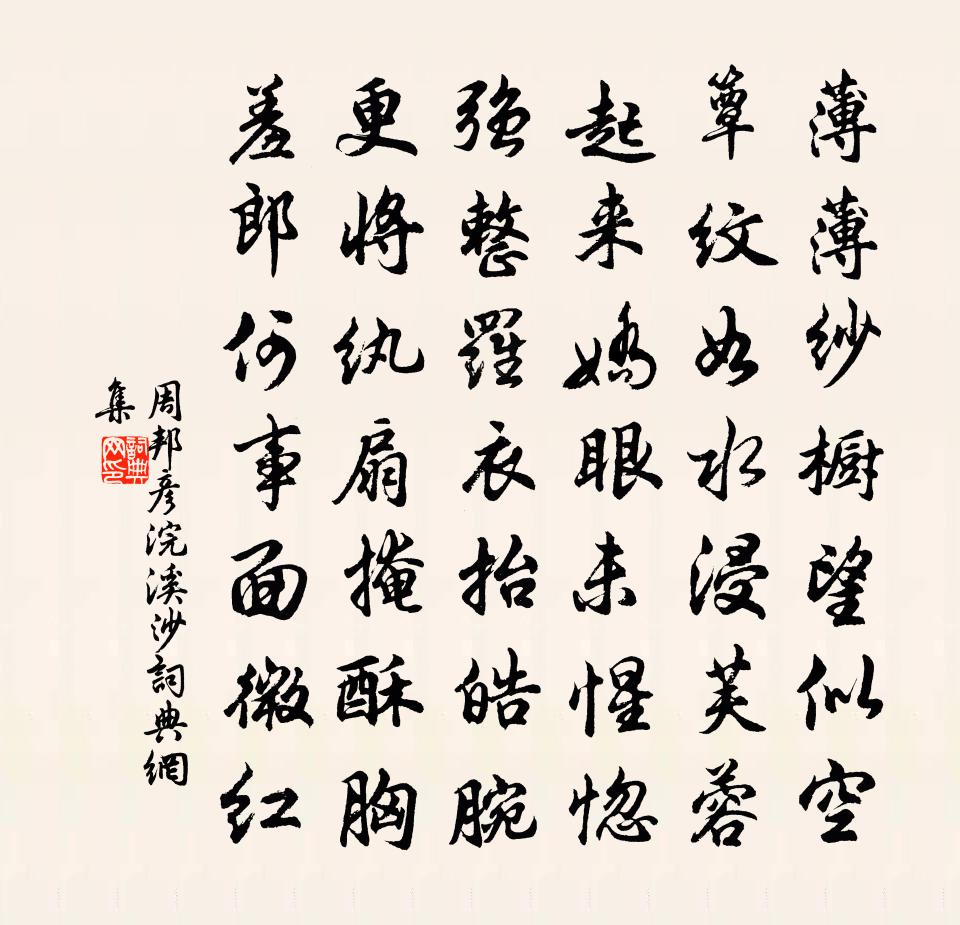 薄薄紗橱望似空
簟纹如水浸芙蓉
起来嬌眼未惺惚
强整羅衣抬皓腕
更将纨扇掩酥胸
羞郎何事面微红
周邦彦浣溪沙詞典網
集
詞典網印